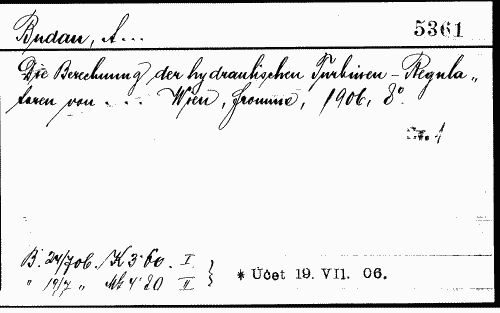 Budau, A...
5361
Die Berechnung der hydraulischen Turbinen-Regula„
toren von . . . Wien, Fromme, 1906, 8°.
B. 24/7 06. K 3·60. I
" 19/7 „ Mk 4·20 II } * Účet 19. VII. 06.